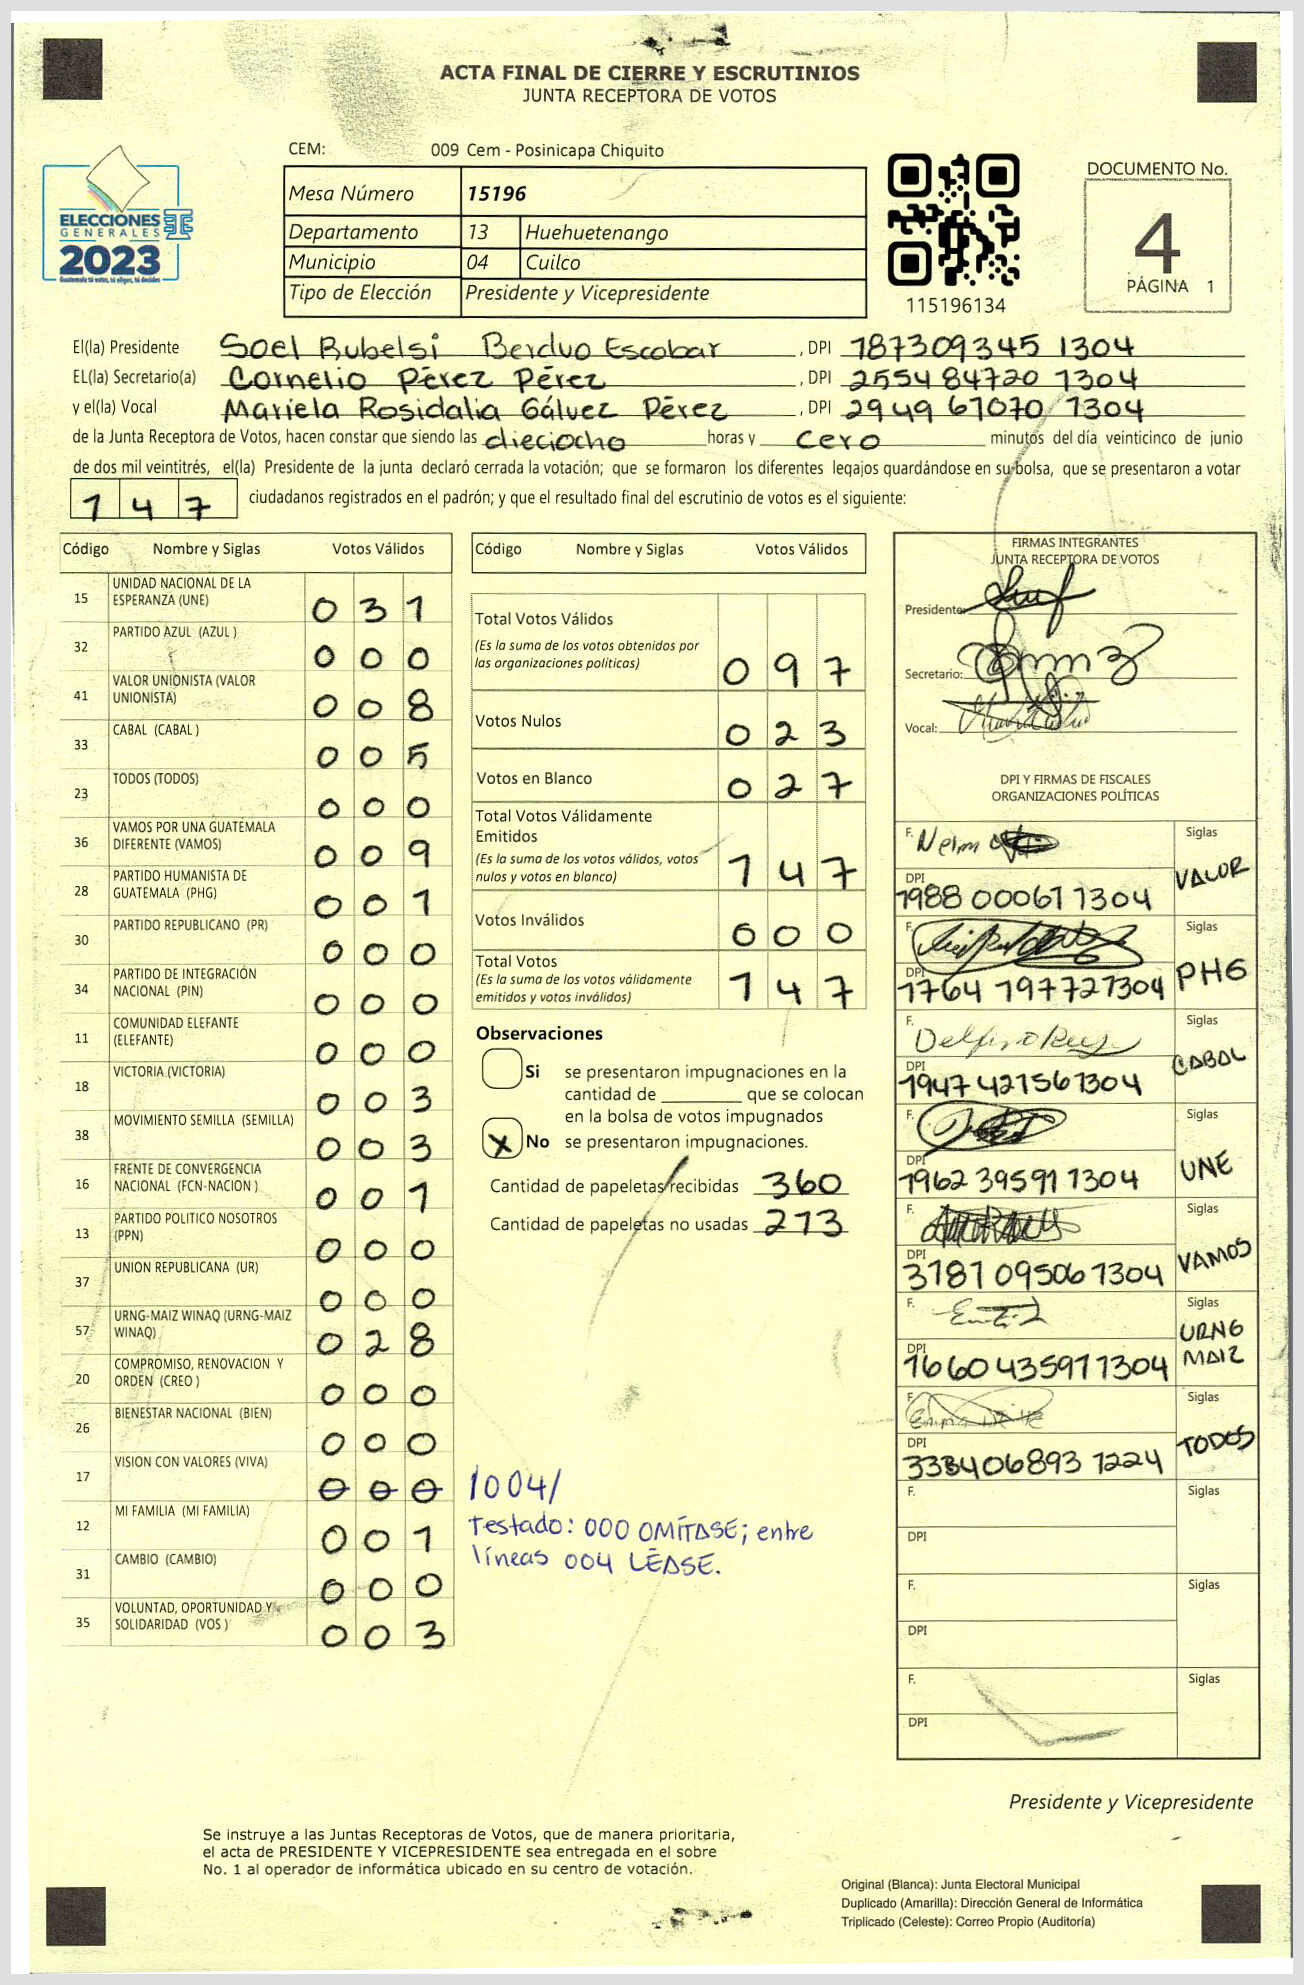 ACTA FINAL DE CIERRE Y ESCRUTINIOS
JUNTA RECEPTORA DE VOTOS
CEM: 009 Cem - Posinicapa Chiquito
Mesa Número 15196
Departamento 13 Huehuetenango
Municipio 04 Cuilco
Tipo de Elección Presidente y Vicepresidente
ELECCIONES
GENERALES
2023
Guatemala tú votas, tú eliges, tú decides
115196134
DOCUMENTO No.
4
PÁGINA 1
El(la) Presidente Soel Rubelsi Berduo Escobar, DPI 187309345 1304
EL(la) Secretario(a) Cornelio Pérez Pérez, DPI 2554 84720 1304
y el(la) Vocal Mariela Rosidalia Gálvez Pérez, DPI 2949 67070 1304
de la Junta Receptora de Votos, hacen constar que siendo las dieciocho horas y cero minutos del día veinticinco de junio
de dos mil veintitrés, el(la) Presidente de la junta declaró cerrada la votación; que se formaron los diferentes legajos guardándose en su bolsa, que se presentaron a votar
147 ciudadanos registrados en el padrón; y que el resultado final del escrutinio de votos es el siguiente:
Código Nombre y Siglas Votos Válidos
15 UNIDAD NACIONAL DE LA ESPERANZA (UNE) 031
32 PARTIDO AZUL (AZUL ) 000
41 VALOR UNIONISTA (VALOR UNIONISTA) 008
33 CABAL (CABAL ) 005
23 TODOS (TODOS) 000
36 VAMOS POR UNA GUATEMALA DIFERENTE (VAMOS) 009
28 PARTIDO HUMANISTA DE GUATEMALA (PHG) 001
30 PARTIDO REPUBLICANO (PR) 000
34 PARTIDO DE INTEGRACIÓN NACIONAL (PIN) 000
11 COMUNIDAD ELEFANTE (ELEFANTE) 000
18 VICTORIA (VICTORIA) 003
38 MOVIMIENTO SEMILLA (SEMILLA) 003
16 FRENTE DE CONVERGENCIA NACIONAL (FCN-NACION ) 001
13 PARTIDO POLITICO NOSOTROS (PPN) 000
37 UNION REPUBLICANA (UR) 000
57 URNG-MAIZ WINAQ (URNG-MAIZ WINAQ) 028
20 COMPROMISO, RENOVACION Y ORDEN (CREO ) 000
26 BIENESTAR NACIONAL (BIEN) 000
17 VISION CON VALORES (VIVA) 000 /004/
12 MI FAMILIA (MI FAMILIA) 001
31 CAMBIO (CAMBIO) 000
35 VOLUNTAD, OPORTUNIDAD Y SOLIDARIDAD (VOS ) 003
Testado: 000 OMÍTASE; entre
líneas 004 LÉASE.
Código Nombre y Siglas Votos Válidos
Total Votos Válidos 097
(Es la suma de los votos obtenidos por
las organizaciones políticas)
Votos Nulos 023
Votos en Blanco 027
Total Votos Válidamente
Emitidos 147
(Es la suma de los votos válidos, votos
nulos y votos en blanco)
Votos Inválidos 000
Total Votos 147
(Es la suma de los votos válidamente
emitidos y votos inválidos)
Observaciones
Si se presentaron impugnaciones en la
cantidad de ________ que se colocan
en la bolsa de votos impugnados
X No se presentaron impugnaciones.
Cantidad de papeletas recibidas 360
Cantidad de papeletas no usadas 213
FIRMAS INTEGRANTES
JUNTA RECEPTORA DE VOTOS
Presidente:
Secretario:
Vocal:
DPI Y FIRMAS DE FISCALES
ORGANIZACIONES POLÍTICAS
F. Siglas VALOR
DPI 1988 00061 1304
F. Siglas PHG
DPI 1764 19772 1304
F. Siglas CABAL
DPI 1947 42156 1304
F. Siglas UNE
DPI 1962 39591 1304
F. Siglas VAMOS
DPI 3181 09506 1304
F. Siglas URNG MAIZ
DPI 1660 43591 1304
F. Siglas TODOS
DPI 3334 06893 1224
F. Siglas
DPI
F. Siglas
DPI
F. Siglas
DPI
Presidente y Vicepresidente
Se instruye a las Juntas Receptoras de Votos, que de manera prioritaria,
el acta de PRESIDENTE Y VICEPRESIDENTE sea entregada en el sobre
No. 1 al operador de informática ubicado en su centro de votación.
Original (Blanca): Junta Electoral Municipal
Duplicado (Amarilla): Dirección General de Informática
Triplicado (Celeste): Correo Propio (Auditoría)